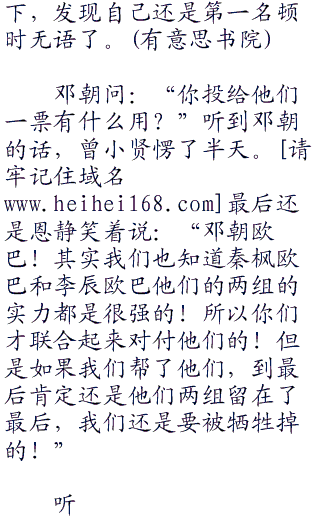 下，发现自己还是第一名顿
时无语了。(有意思书院)
邓朝问：“你投给他们
一票有什么用？”听到邓朝
的话，曾小贤愣了半天。[请
牢记住域名
www.heihei168.com]最后还
是恩静笑着说：“邓朝欧
巴！其实我们也知道秦枫欧
巴和李辰欧巴他们的两组的
实力都是很强的！所以你们
才联合起来对付他们的！但
是如果我们帮了他们，到最
后肯定还是他们两组留在了
最后，我们还是要被牺牲掉
的！”
听